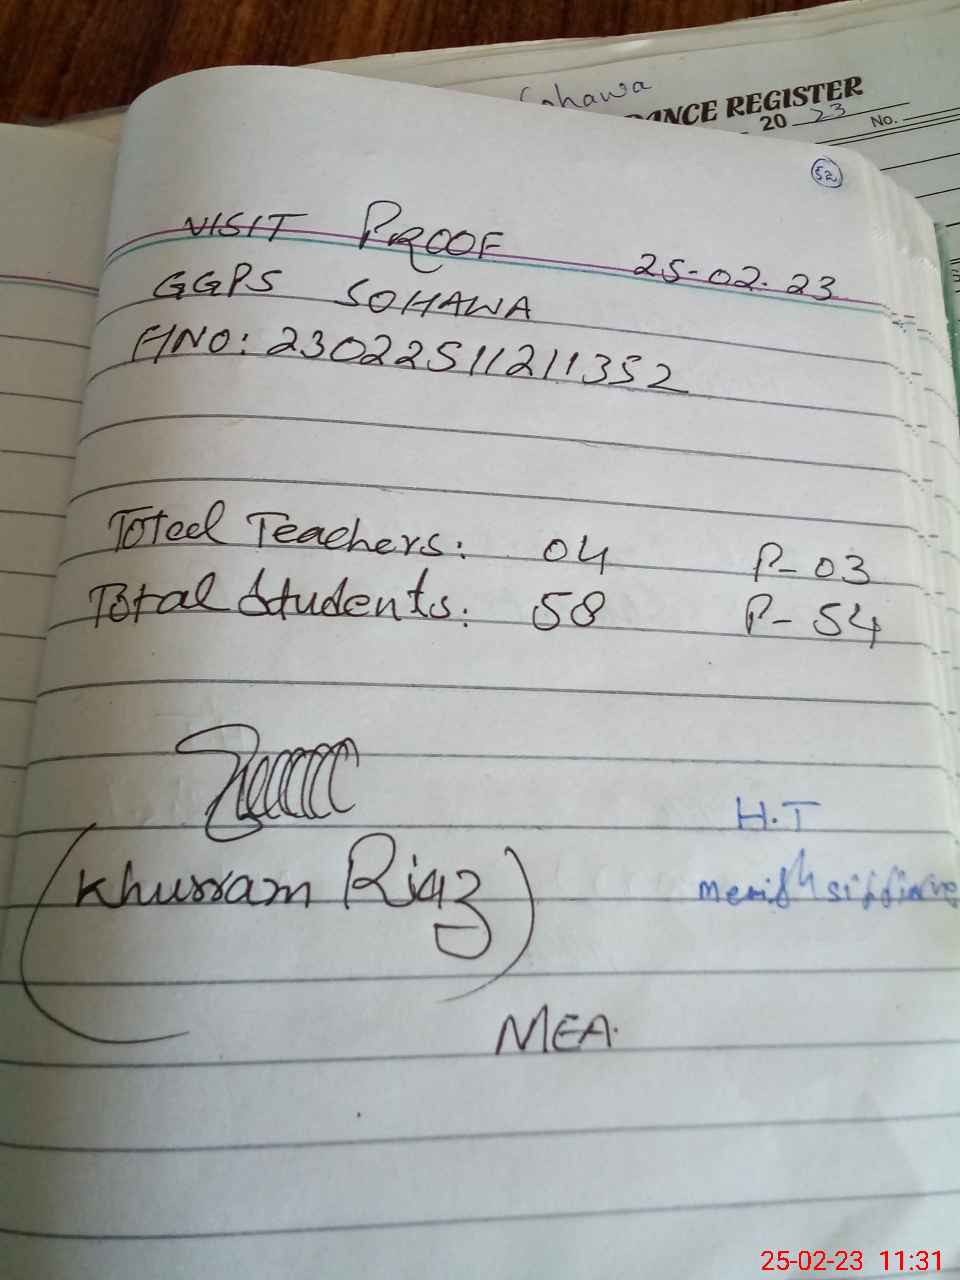 Sohawa
ANCE REGISTER
20 23 No.
52
VISIT PROOF 25-02-23
GGPS SOHAWA
HNO: 23022511211352
Total Teachers: 04 P-03
Total Students: 58 P-54
H.T
(Khurram Riaz)
MEA.
25-02-23 11:31